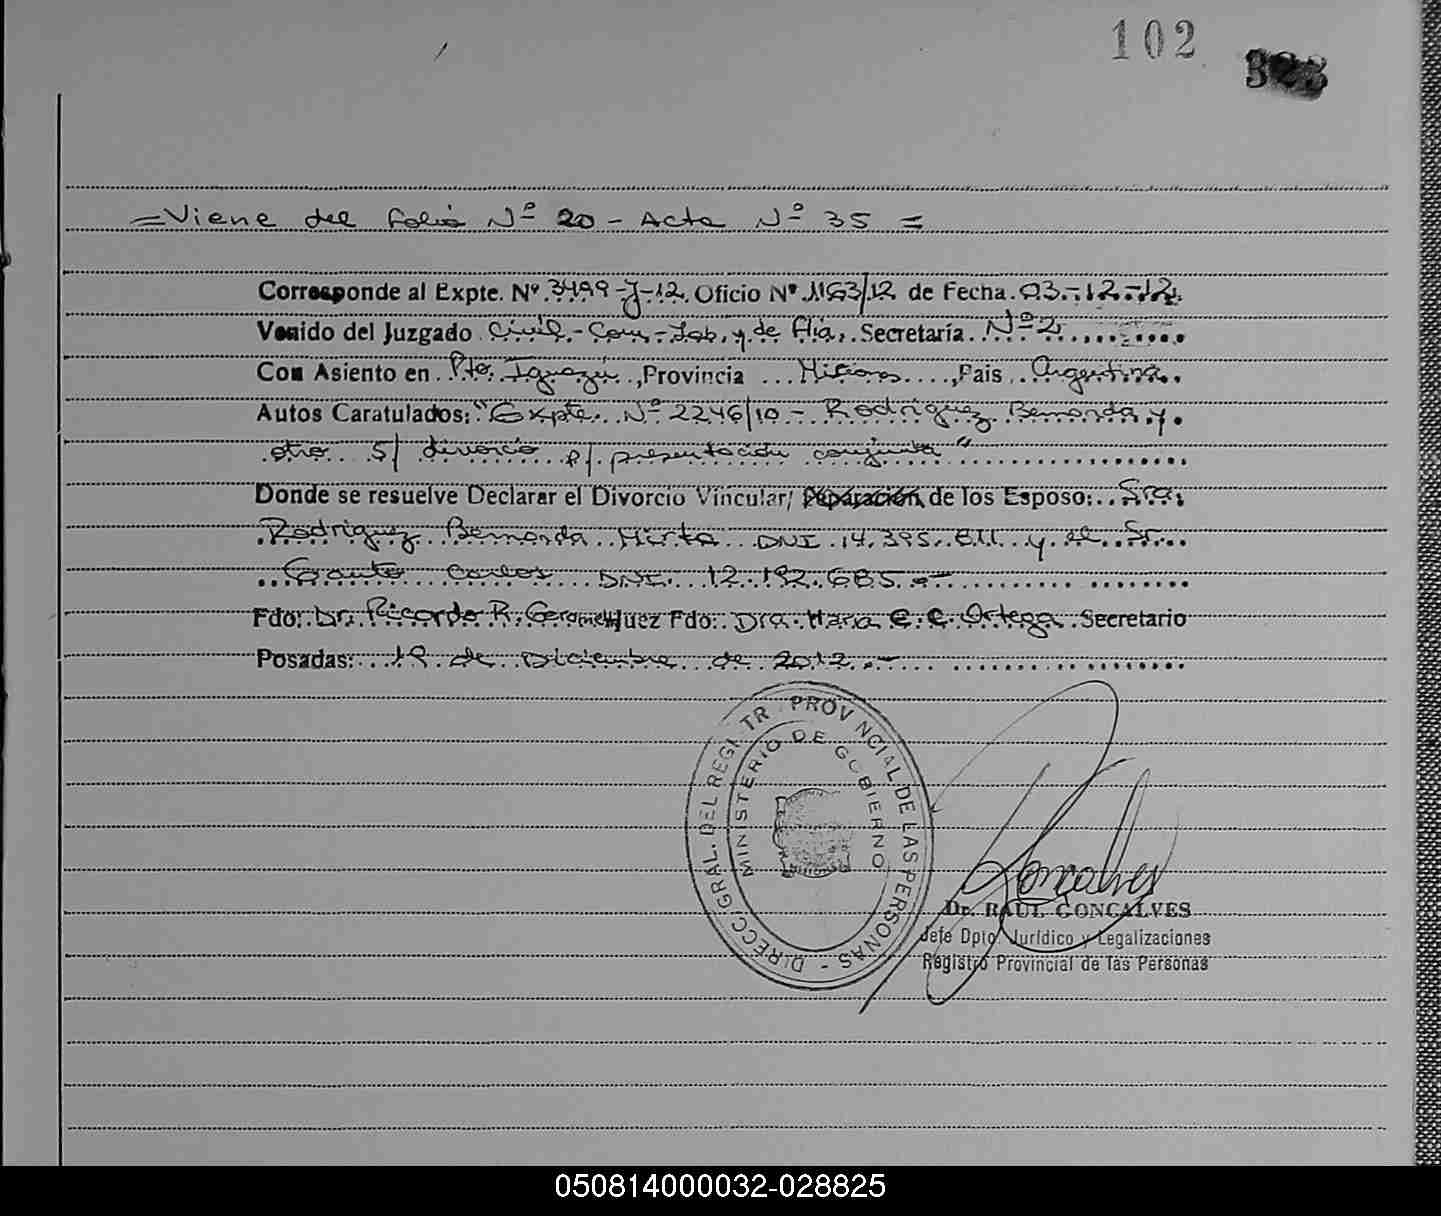 102
=Viene del folio Nº 20 - Acta Nº 35 =
Corresponde al Expte. Nº 3499-J-12. Oficio Nº 1163/12 de Fecha. 03.-12.-12.
Venido del Juzgado Civil.-Com.-Lab. y de flia. Secretaría. Nº 2
Con Asiento en Pto. Iguazú, Provincia Misiones, País Argentina.
Autos Caratulados: "Expte. Nº 2246/10 - Rodriguez Bernarda y
otro S/ divorcio p/ presentación conjunta"
Donde se resuelve Declarar el Divorcio Vincular/ Separación de los Esposo: Sra.
Rodriguez Bernarda Mirta DNI 14.395.811 y el Sr.
Gauto Carlos DNI. 12.192.685.-
Fdo: Dr. Ricardo R. Juez Fdo: Dra. Maria E. C. Ortega Secretario
Posadas: 19 de Diciembre de 2012.-
DIRECC. GRAL. DEL REGISTR PROVINCIAL DE LAS PERSONAS -
MINISTERIO DE GOBIERNO
Dr. RAUL GONCALVES
Jefe Dpto. Jurídico y Legalizaciones
Registro Provincial de las Personas
050814000032-028825